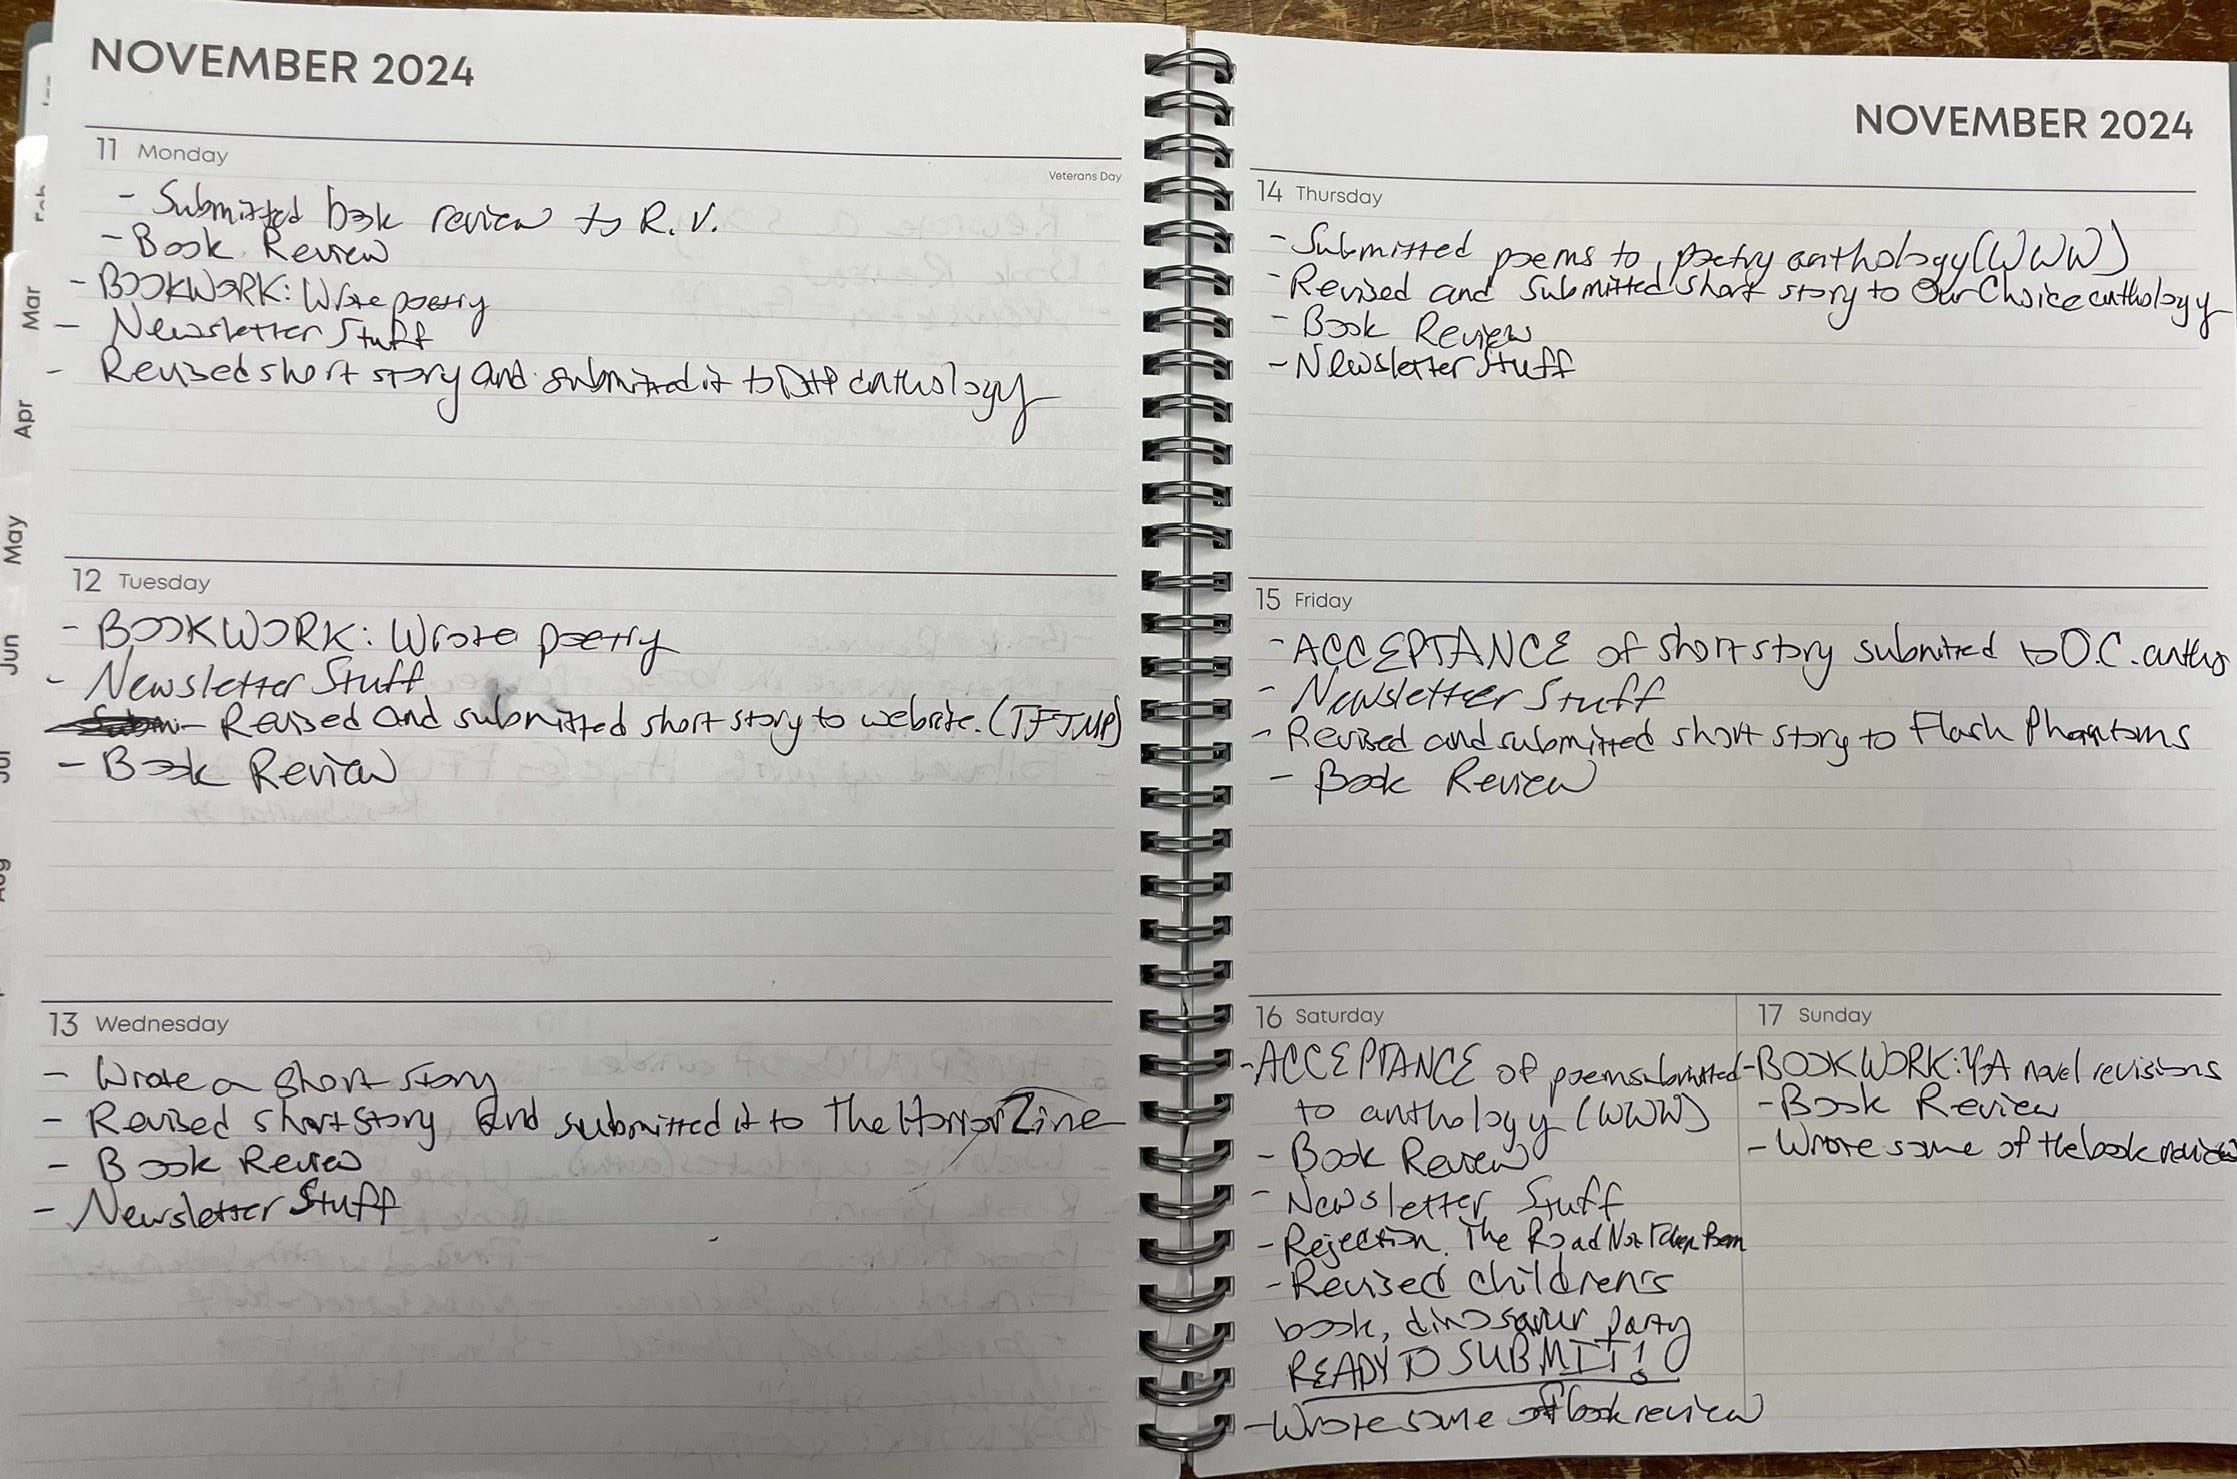 NOVEMBER 2024
11 Monday
Veterans Day
- Submitted book review to R.V.
- Book Review
- BOOKWORK: Wrote poetry
- Newsletter Stuff
- Revised short story and submitted it to DHP anthology
12 Tuesday
- BOOKWORK: Wrote poetry
- Newsletter Stuff
- Revised and submitted short story to website. (TFTMP)
- Book Review
13 Wednesday
- Wrote a short story
- Revised short story and submitted it to The Horror Zine
- Book Review
- Newsletter Stuff
NOVEMBER 2024
14 Thursday
- Submitted poems to poetry anthology (WWW)
- Revised and submitted short story to Our Choice anthology
- Book Review
- Newsletter Stuff
15 Friday
- ACCEPTANCE of short story submitted to O.C. antho
- Newsletter Stuff
- Revised and submitted short story to Flash Phantoms
- Book Review
16 Saturday
- ACCEPTANCE of poem submitted
to anthology (WWW)
- Book Review
- Newsletter Stuff
- Rejection. The Road Not Taken Poem
- Revised children's
book, dinosaur party
READY TO SUBMIT!
- Wrote some of book review
17 Sunday
- BOOKWORK: YA novel revisions
- Book Review
- Wrote some of the book review
Feb
Mar
Apr
May
Jun
Jul
Aug